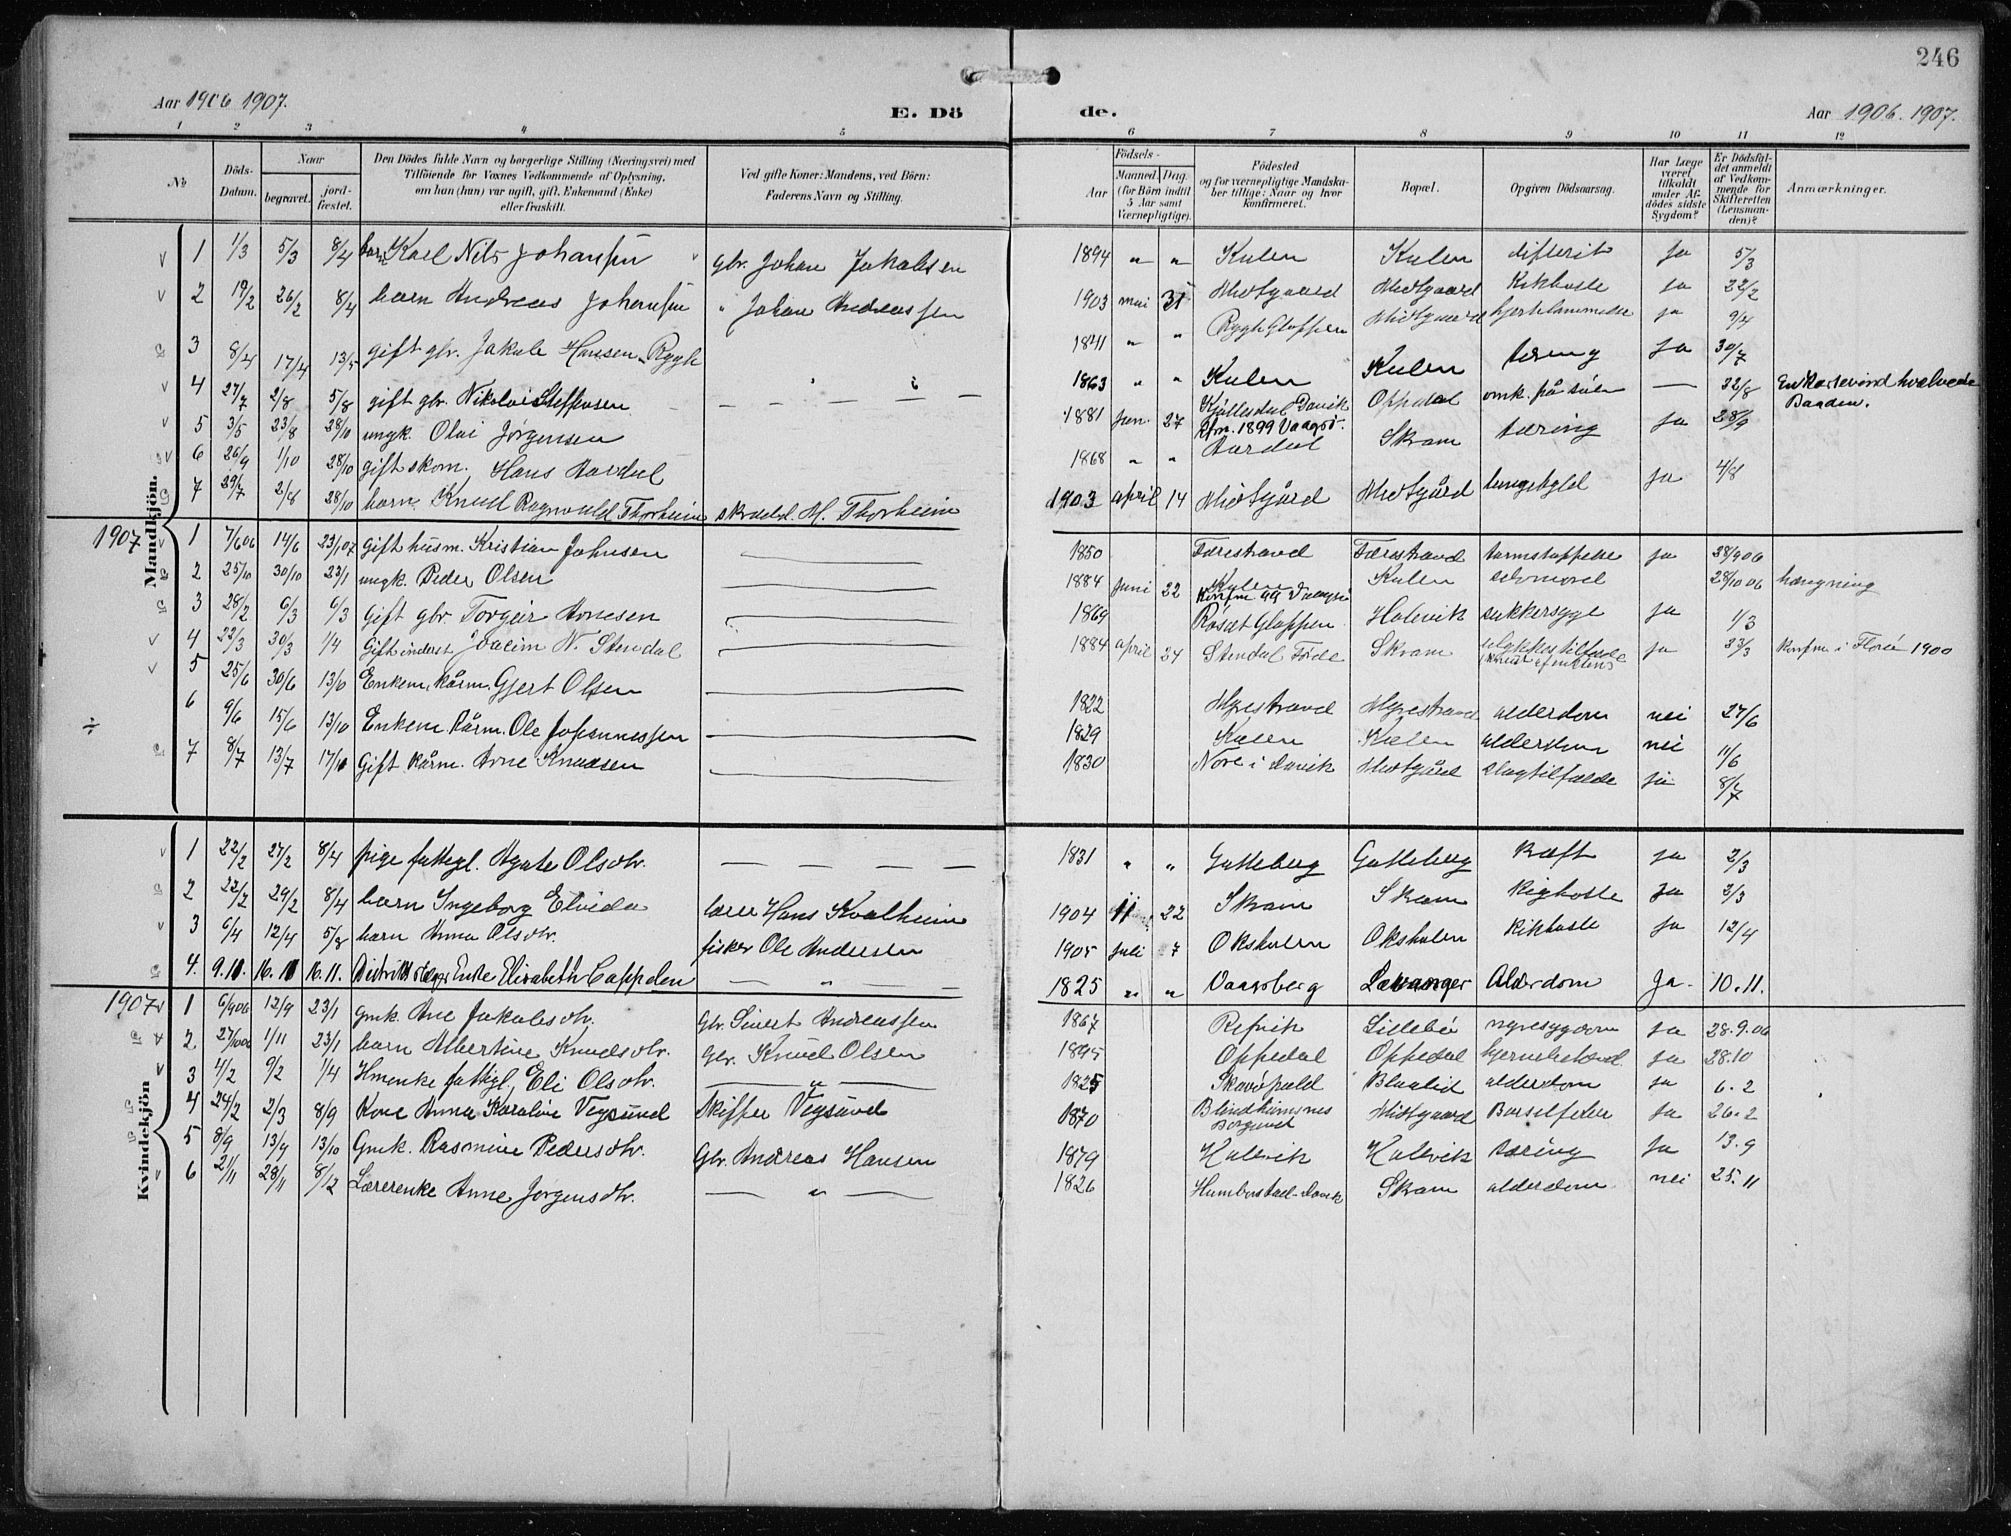 246
Aar 1906 1907.
E. Dö
de.
Aar 1906. 1907.
1 2 3 4 5 6 7 8 9 10 11 12
No
Döds-Datum.
Naar
begravet.
jordfæstet.
Den Dödes fulde Navn og borgerlige Stilling (Næringsvei) med
Tilföiende for Voxnes Vedkommende af Oplysning,
om han (hun) var ugift, gift, Enkemand (Enke)
eller fraskilt.
Ved gifte Koner: Mandens, ved Börn:
Faderens Navn og Stilling.
Födsels-
Aar
Maaned. Dag.
(for Börn indtil
5 Aar samt
Værnepligtige).
Födested
og for værnepligtige Mandska-
ber tillige: Naar og hvor
konfirmeret.
Bopæl.
Opgiven Dödsaarsag.
Har Læge
været
tilkaldt
under Af-
dödes sidste
Sygdom?
Er Dödsfal-
det anmeldt
af Vedkom-
mende for
Skifteretten
(Lensman-
den)?
Anmærkninger.
Mandkjön.
1 1/3 5/3 8/4 barn Karl Nils Johansen gbr. Johan Jakobsen 1894 " " Kulen Kulen difterit ja 5/3
2 19/2 26/2 8/4 barn Andreas Johansen " Johan Andreassen 1903 mai 31 Midtgaard Midtgaard Kikhoste ja 22/2
3 8/4 17/4 13/5 gift gbr. Jakob Hansen Rygh 1841 " " Rygh Gloppen Midtgaard hjertelammelse ja 9/4
4 27/7 2/8 5/8 gift gbr. Nikolai Steffensen — — — — 1863 " " Kulen Kulen tæring ja 30/7
5 3/5 23/8 28/10 ungk. Olai Jørgensen 1881 jan. 27 Kjøllesdal Davik Kfm. 1899 Vaagsø. Oppdal omk. på søen — 22/8 En Kastevind hvælvede Baaden.
6 26/9 1/10 28/10 gift skom. Hans Aardal 1868 " " Aardal Skram tæring ja 28/9
7 29/7 2/8 28/10 barn Knut Ragnvald Thorheim skrædd. M. Thorheim 1903 april 14 Midtgård Midtgård lungebyld ja 4/8
1907
1 7/6 06 14/6 23/1 07 Gift husm. Kristian Johnsen 1850 Færestrand Færestrand tarmstoppelse ja 28/9 06
2 25/10 30/10 23/1 ungk. Peder Olsen 1884 Juni 22 Kulen Konfm 99 Vaagsø Kulen selvmord 28/10 06 hængning
3 28/2 6/3 6/3 Gift gbr. Torgeir Arnesen 1869 Røsæt Gloppen Holevik sukkersyge ja 1/3
4 22/3 30/3 1/4 Gift inderst Joacim N. Stendal 1884 april 24 Stendal Føde Skram ulykkestilfælde ja 23/3 Konfm. i Florø 1900
5 25/6 30/6 13/10 Enkem. kårm. Gjert Olsen 1822 Myrestrand Myrestrand alderdom nei 27/6
6 9/6 15/6 13/10 Enkem. kårm. Ole Johannessen 1829 Kulen Kulen alderdom nei 11/6
7 8/7 13/7 17/10 Gift kårm. Arne Knudsen 1830 Nore i Davik Midtgård Slagtilfælde ja 8/7
Kvindekjön
1 22/2 27/2 8/4 pige fattigl. Agate Olsdtr. — — — — 1831 " " Gotteberg Gotteberg Kræft ja 2/3
2 22/2 29/2 8/4 barn Ingeborg Elvida lærer Hans Kvalheim 1904 11 22 Skram Skram Kighoste ja 2/3
3 6/4 12/4 5/8 barn Anna Olsdtr. fisker Ole Andersen 1905 juli 7 Oksholen Oksholen Kikhoste ja 12/4
4. 9.11. 16.11 16.11. Distriktslæge Enke Elisabeth Cappelen — " — — 1825 " " Vaagsberg Levanger Alderdom Ja. 10.11.
1907
1 6/9 06 12/9 23/1 gmk. Ane Jakobsdtr. Gbr. Sivert Andreassen 1867 Refvik Lillebø nyresygdom ja 28.9.06
2. 27/10 06 1/11 23/1 barn Albertine Knudsdtr. Gbr. Knud Olsen 1895 Oppedal Oppedal hjernebetænd. ja 28.10
3 4/2 9/2 1/4 Hmenke fattigl. Eli Olsdtr. — " — 1825 Blaalid alderdom ja 6.2
4 24/2 2/3 8/9 Kone Anna Karoline Vegsund Skipper Vegsund 1870 Blindheimsnes Borgund Midtgaard Barselfeber ja 26.2
5 8/9 13/9 13/10 Gmk. Rasmine Pedersdtr. Gbr. Andreas Hansen 1879 Halvik Halvik tæring ja 13.9
6 2/11 28/11 8/12 Lærerenke Anne Jørgensdtr. — " — 1826 Humborstad-Davik Skram alderdom nei 25.11